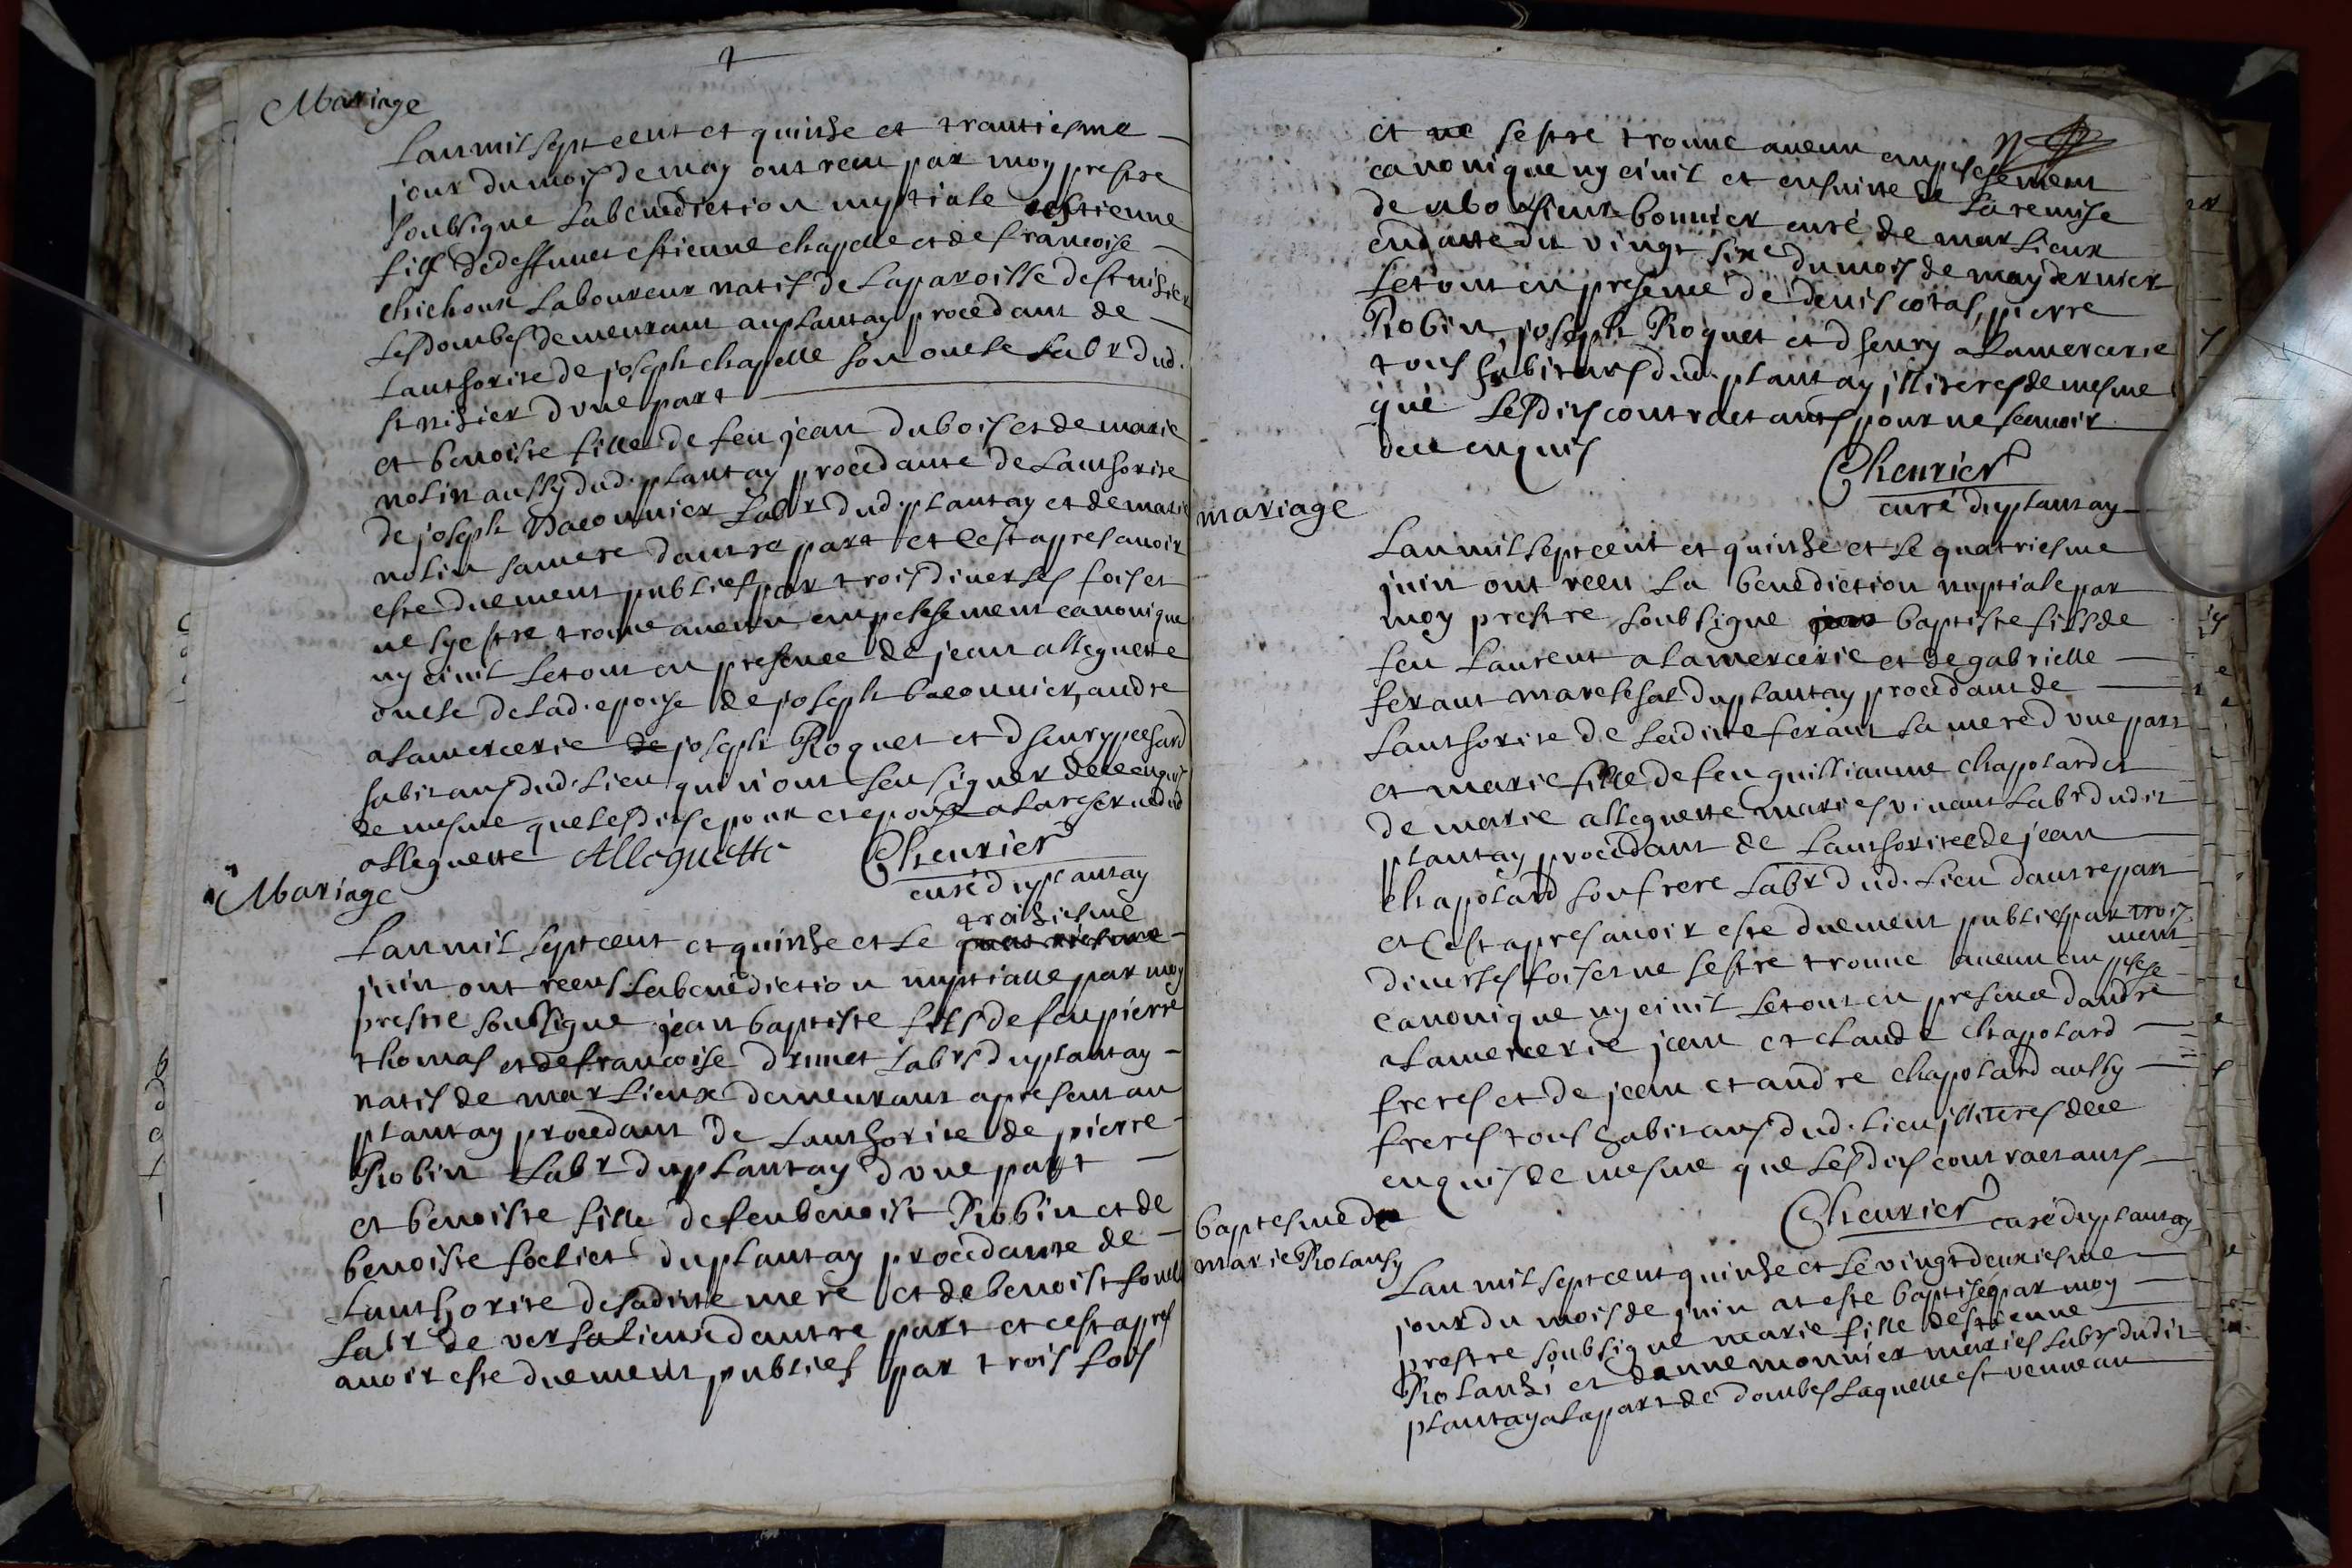 Mariage
Lan mil sept cent et quinse et trantiesme
jour du mois de may ont receu par moy prestre
soubsigne la benediction nuptiale estienne
fils de deffunct estienne chapelle et de francoise
chichoux laboureur natif de la paroisse de st nisier
les dombes demeurant au plantay procedant de
lauthorite de joseph chapelle son oncle labr dud.
st nisier dune part
et benoiste fille de feu jean dubois et de marie
nolin aussy dud. plantay procedante de lauthorite
de joseph baconnier labr dud. plantay et de marie
nolin sa mere dautre part et cest apres avoir
este duement publies par trois diverses fois et
ne sy estre trouve aucun empeschement canonique
ny civil le tout en presence de jean alleguette
oncle de lad. epoise de joseph baconnier, andre
alamercerie de joseph Roquet et dhenry pechard
habitans dud. lieu qui nont sceu signer de ce enquis
de mesme que lesdits epoux et epoise a la reserve dud
alleguette Alleguette Cheurier
curé du plantay
Mariage
troisiesme
Lan mil sept cent et quinse et le quatriesme
juin ont receus la benediction nuptialle par moy
prestre soubsigne jean baptiste fils de feu pierre
thomas et de francoise drunet labrs du plantay
natif de marlieux demeurant apresent au
plantay procedant de lauthorite de pierre
Robin labr du plantay dune part
et benoiste fille de feu benoist Robin et de
benoiste foelier du plantay procedante de
lauthorite de sadite mere et de benoist
labr de versalieux dautre part et cest apres
avoir este duement publies par trois fois
et ne sestre trouve aucun empeschement
canonique ny civil et ensuitte de la remise
de mo sieur bonnier curé de marlieux
en datte du vingt sixe du mois de may dernier
le tout en presence de denis cotas, pierre
Robin, joseph Roquet et dhenry alamercerie
tous habitans dud. plantay illiteres de mesme
que lesdits contractants pour ne scauoir
de ce enquis
Cheurier
curé du plantay
mariage
Lan mil sept cent et quinse et le quatriesme
juin ont receu la benediction nuptiale par
moy prestre soubsigne jean baptiste fils de
feu Laurent alamercerie et de gabrielle
ferant mareschal du plantay procedant de
lauthorite de ladite ferant sa mere dune part
et marie fille de feu guilliaume chapolard et
de marie alleguette maries vivant labr dudit
plantay procedant de lauthoritee de jean
chapolard son frere labr dud. lieu dautre part
et cest apres avoir este duement publies par trois
diverses fois et ne sestre trouve aucun empesche
ment
canonique ny civil le tout en presence dandre
alamercerie jean et claude chapolard
freres et de jean et andre chapolard aussy
freres tous habitans dud. lieu illiteres de ce
enquis de mesme que lesdits contractants
Cheurier curé du plantay
baptesme de
marie Rolansy
Lan mil sept cent quinse et le vingt deuxiesme
jour du mois de juin at este baptisé par moy
prestre soubsigne marie fille destienne
Rolansi et danne monnier maries labrs dudit
plantay a la part de dombes laquelle est venue au